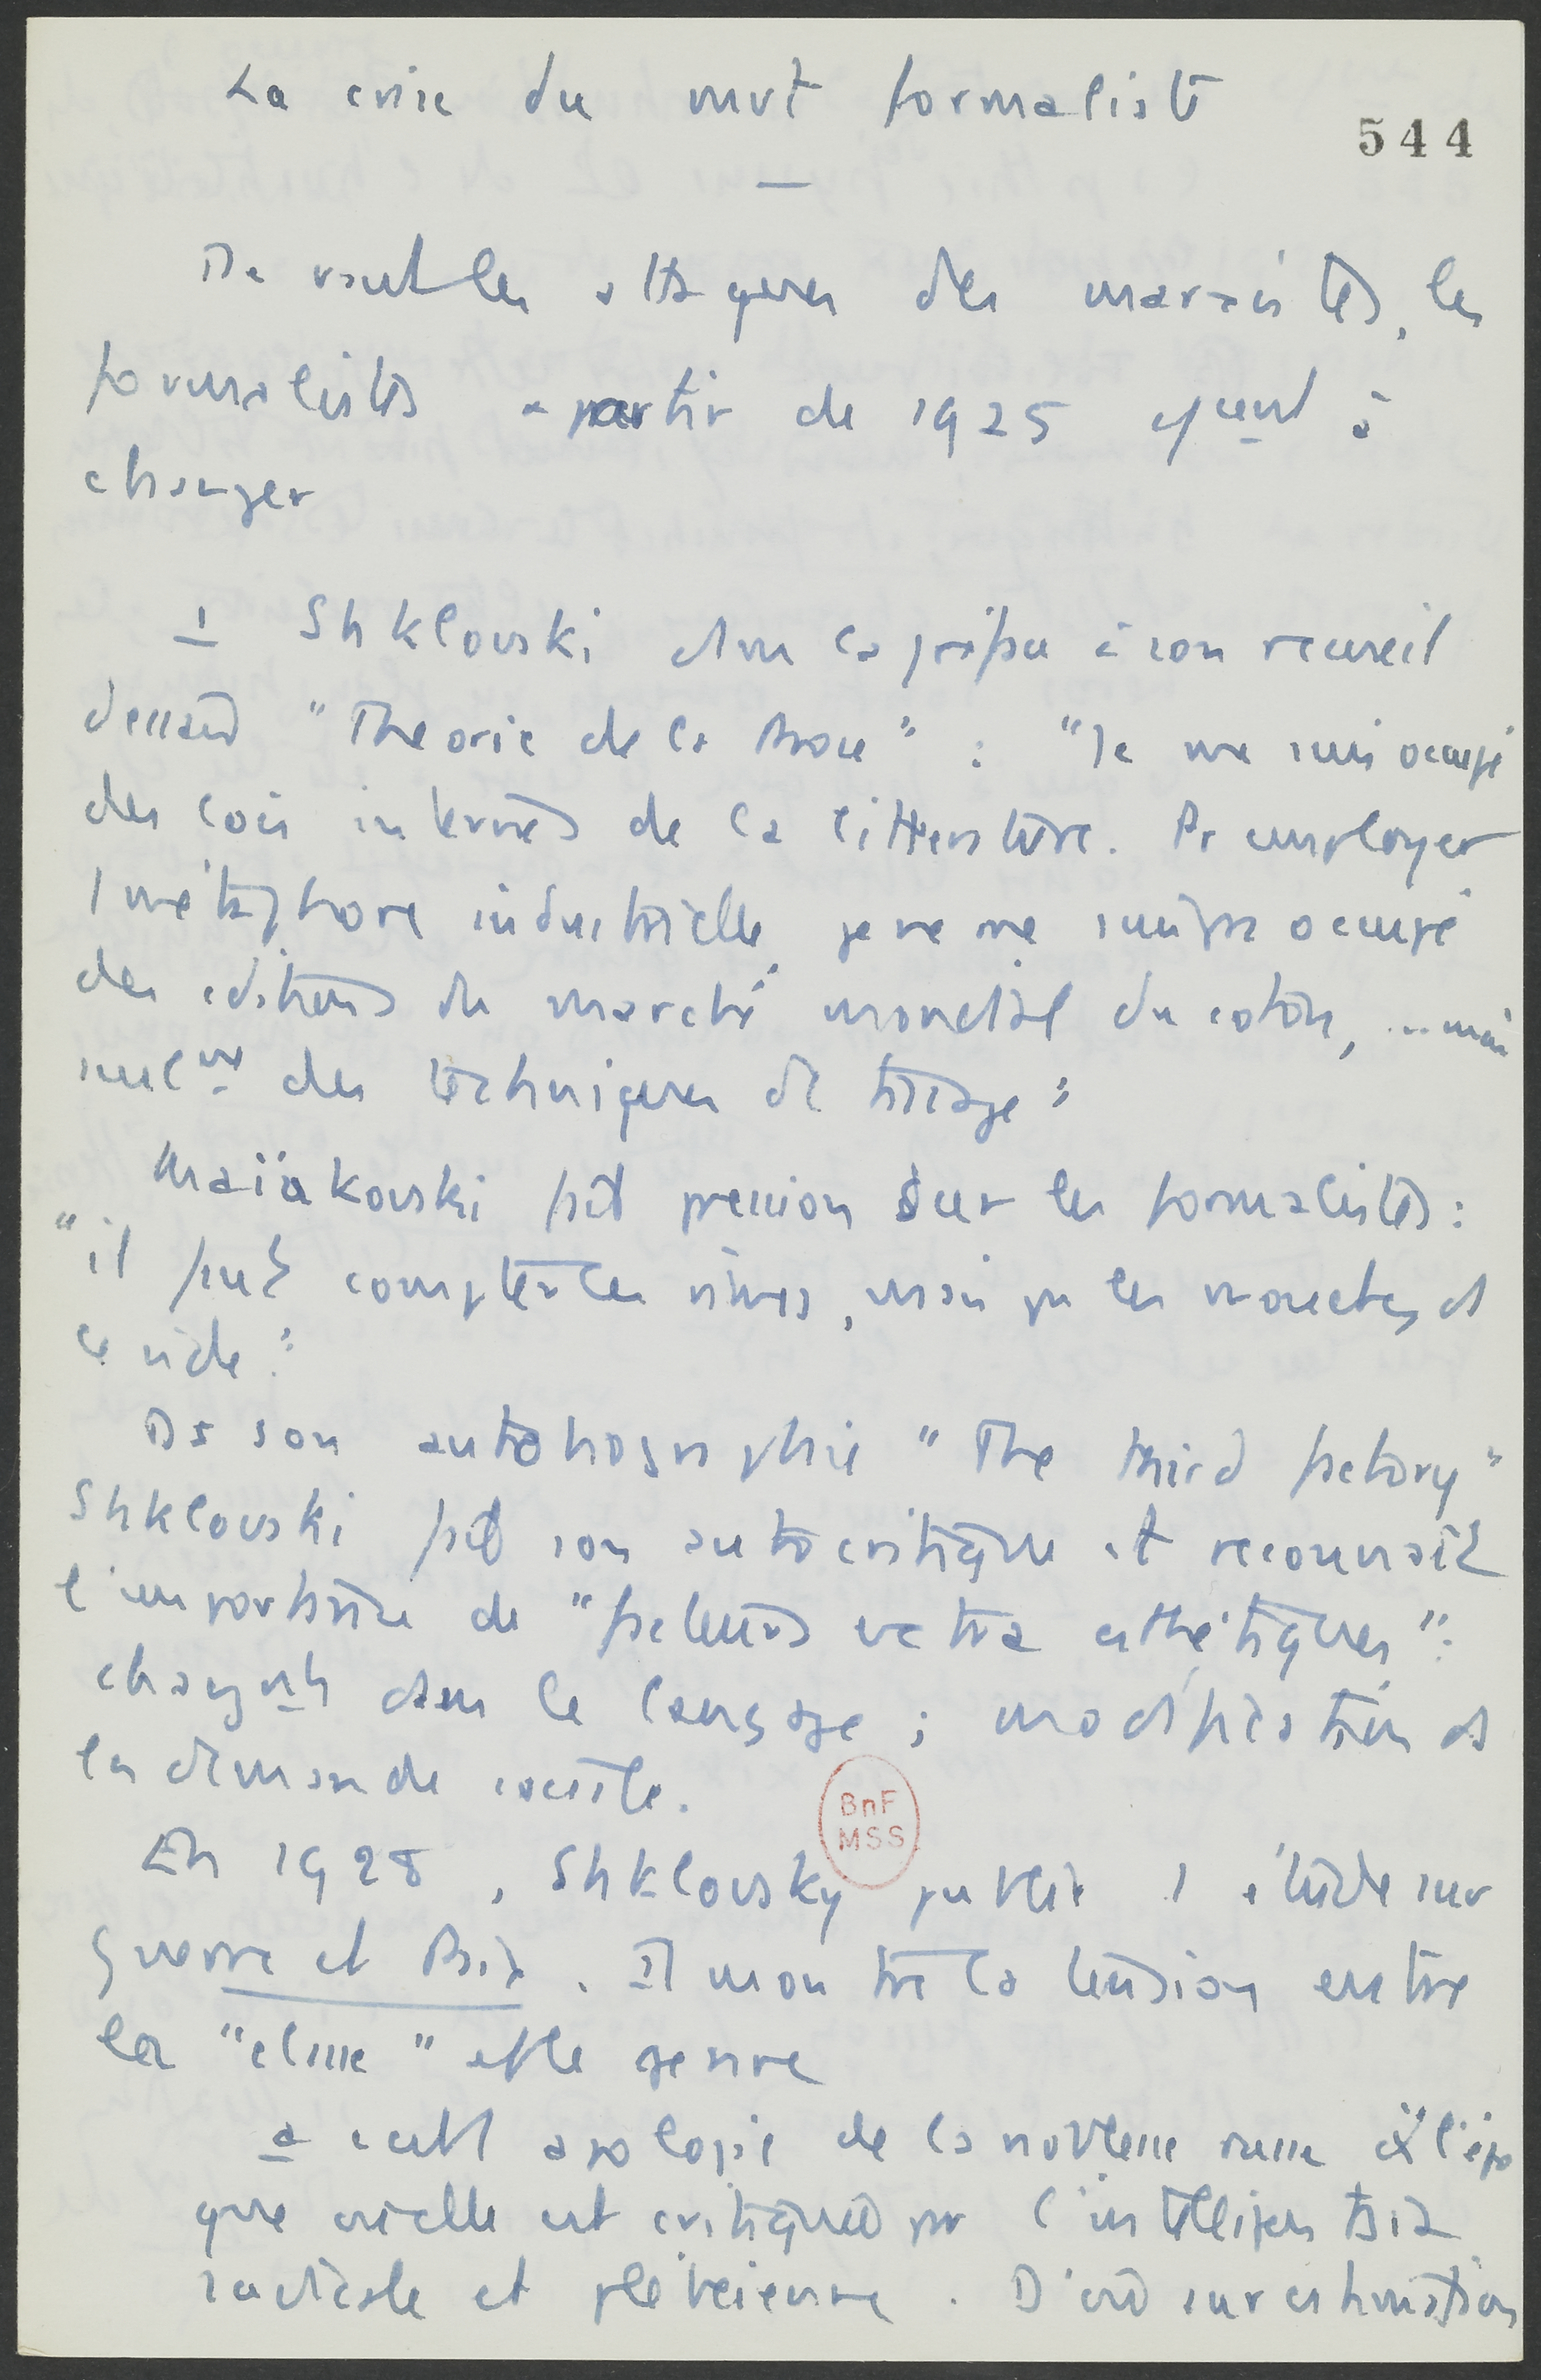 La crise du mvt formaliste
544
Devant les attaques des marxistes, les
formalistes a partir de 1925 
changer
1 Shklovski dans la préface à son recueil
dessais "Theorie de la Prose" : "Je me suis occupé
des lois internes de la littérature. Pr employer
1 métaphore industrielle, je ne me suis pas occupé
des cditions du marché mondial du coton, ... mais
seulmt des techniques de tissage"
Maïakovski fait pression sur les formalistes :
"il faut compter les rimes, mais pas les mouches ds
le vide."
Ds son autobiographie "The third factory"
Shklovski fait son autocritique et reconnait
l'importance de "facteurs extra esthétiques" :
changmts dans le langage ; modification ds
la demande sociale.
En 1928, Shklovsky publie 1 étude sur
Guerre et Paix. Il montre la tension entre
la "classe" et le genre
a cest 1 apologie de la noblesse russe à l'épo
que où elle est critiquée par l'intelligentsia
radicale et plébéienne. D'où surestimation
BnF
MSS